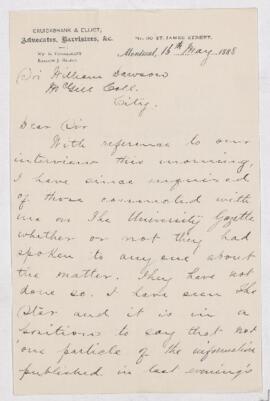 CRUICKSHANK & ELLIOT,
Advocates, Barristers, &c.
ST. JAMES STREET,
Montreal, 16th May 1888
Sir William Dawson
McGill Coll.
City.
Dear Sir
With reference to our
interview this morning,
I have since inquired
of those connected with
me on The University Gazette
whether or not they had
spoken to any one about
the matter. They have not
done so. I have seen The
Star and it is in a
position to say that not
one particle of the information
published in last evening's